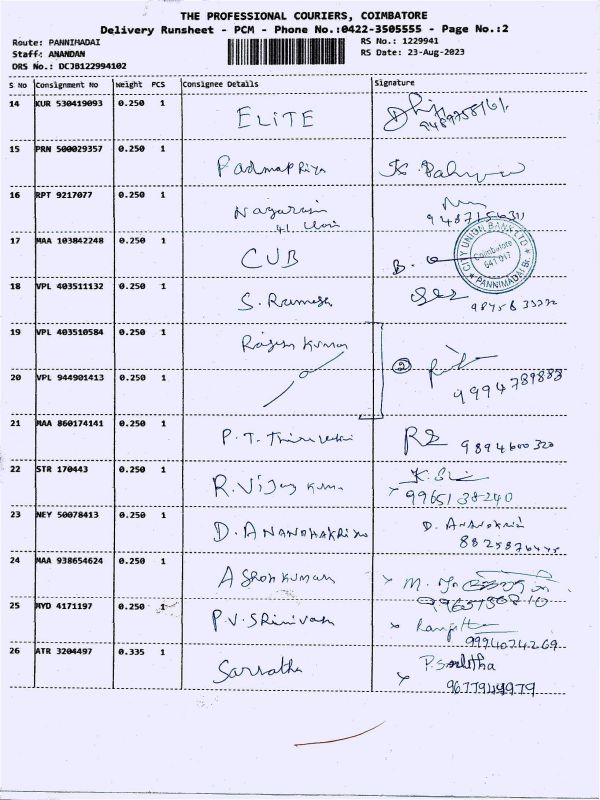 THE PROFESSIONAL COURIERS, COIMBATORE
Delivery Runsheet - PCM - Phone No.:0422-3505555 - Page No.:2
Route: PANNIMADAI
RS No.: 1229941
Staff: ANANDAN
RS Date: 23-Aug-2023
DRS No.: DCJB122994102
S No Consignment No Weight PCS Consignee Details Signature
14 KUR 530419093 0.250 1 ELITE
15 PRN 500029357 0.250 1 Padmapriya
16 RPT 9217077 0.250 1 Nagarajan
17 MAA 103842248 0.250 1 CUB B.
CITY UNION BANK LTD
Coimbatore
641 017
PANNIMADAI Br.
18 VPL 403511132 0.250 1 S. Ramesh
19 VPL 403510584 0.250 1 Rajesh Kumar
20 VPL 944901413 0.250 1 2 9994789888
21 MAA 860174141 0.250 1 P. T. RS 9894600320
22 STR 170443 0.250 1 R. Vijay Kumar
9965138240
23 NEY 50078413 0.250 1 D. D.
24 MAA 938654624 0.250 1 Ashok Kumar M.
25 MYD 4171197 0.250 1 P.V. Srinivasan
9994074269
26 ATR 3204497 0.335 1
9677949979